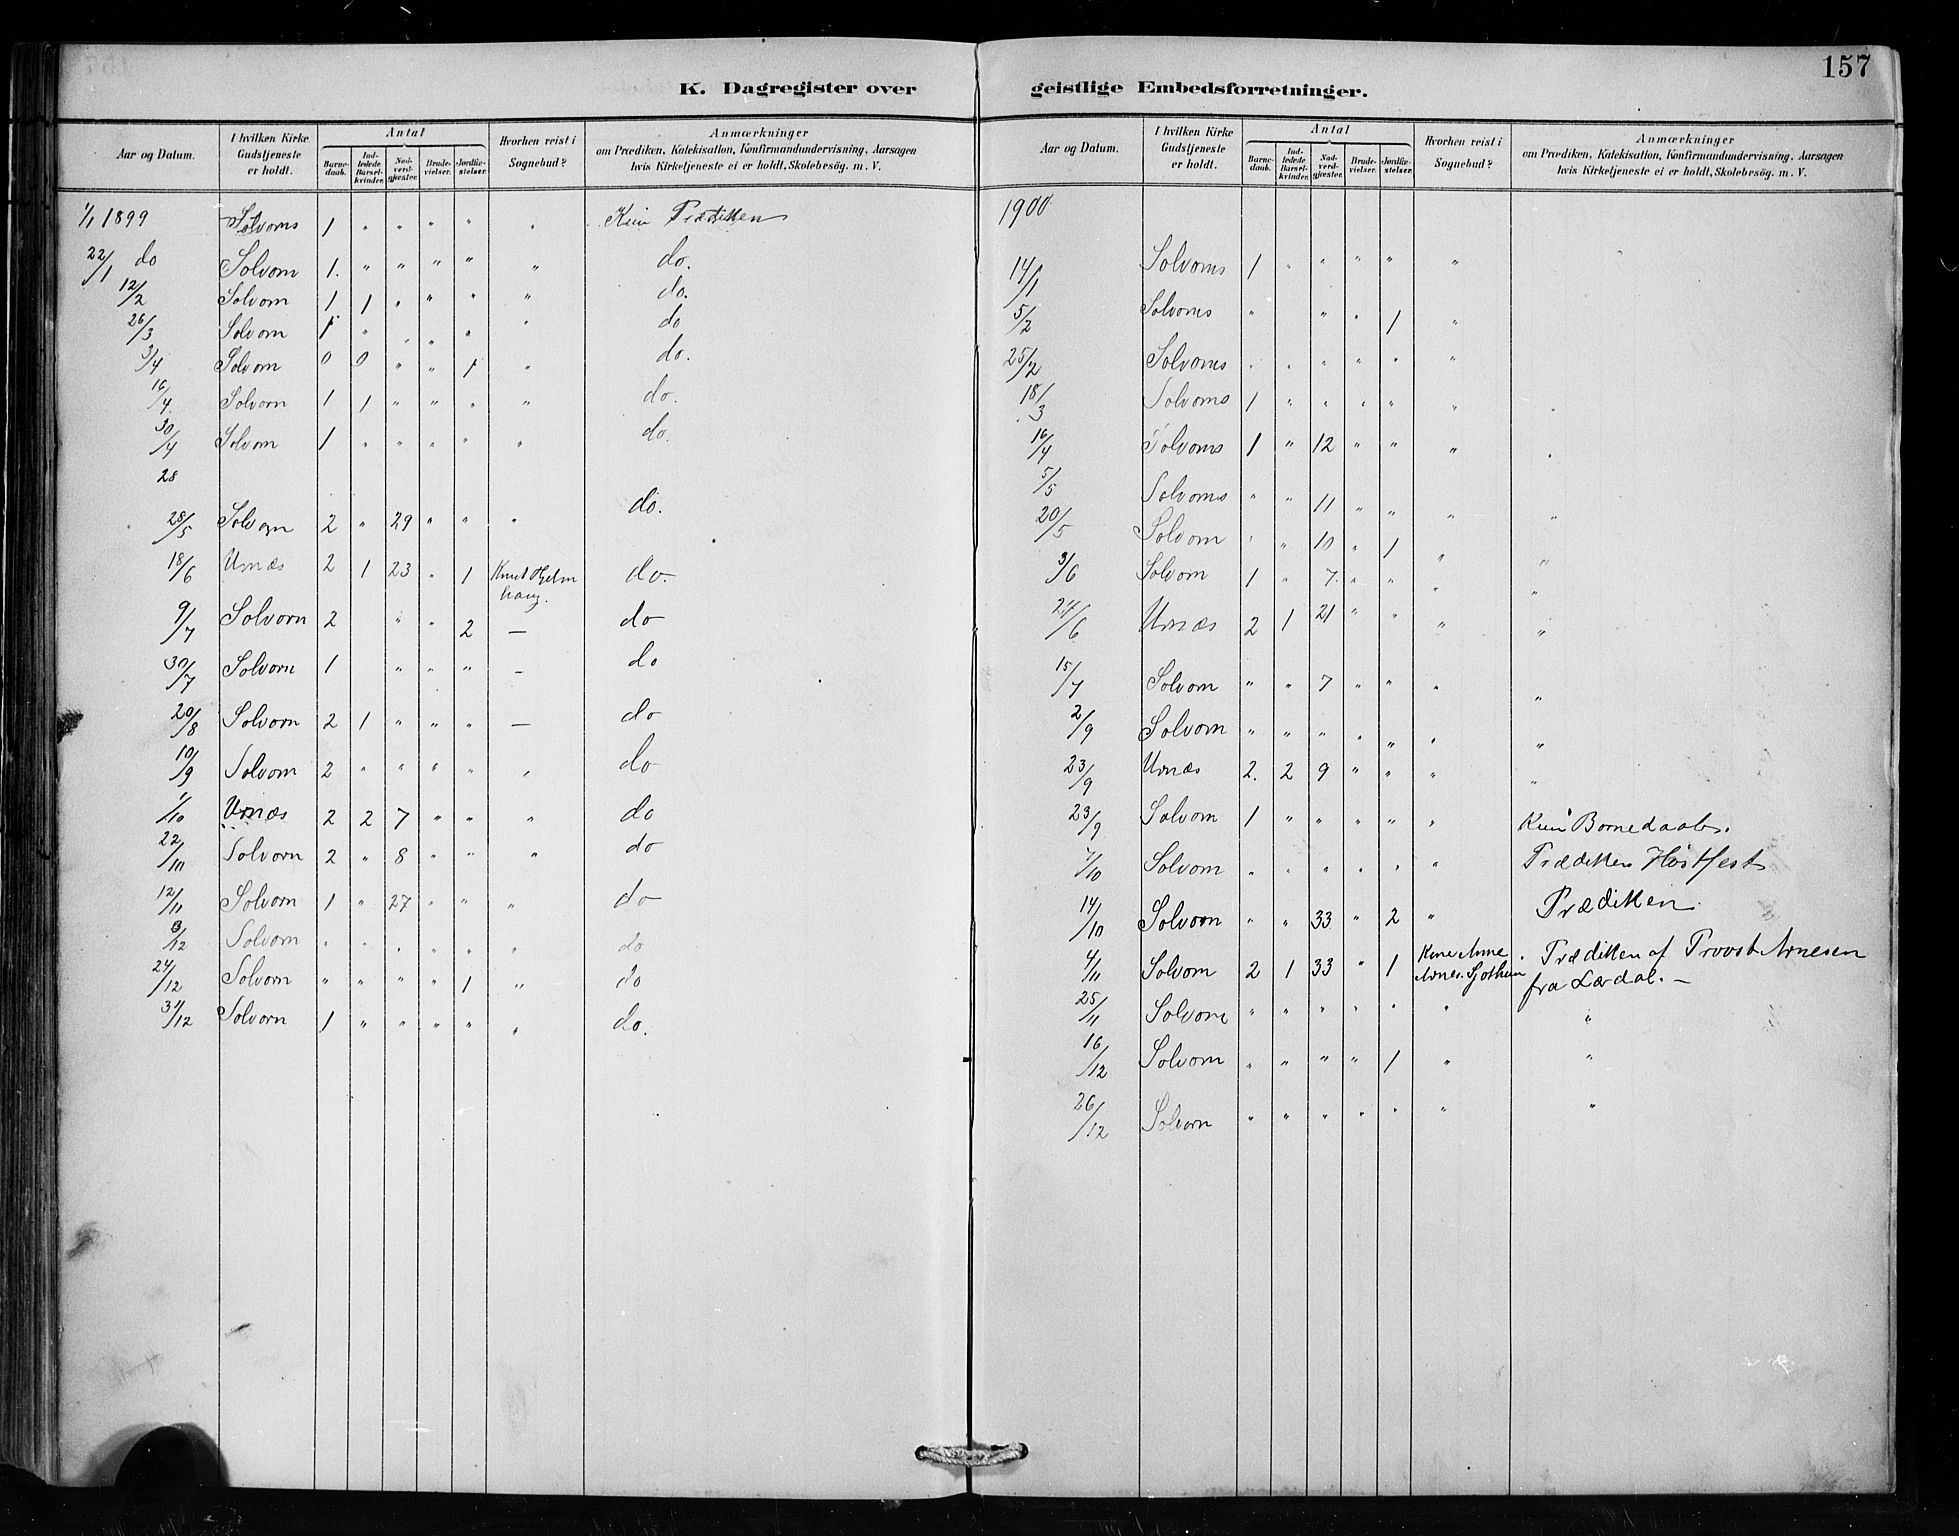 157
K. Dagregister over geistlige Embedsforretninger.
Aar og Datum. | I hvilken Kirke Gudstjeneste er holdt. | Antal | Barne-daab. | Ind-ledede Barsel-kvinder. | Nad-verd-gjester. | Brude-vielser. | Jordfæ-stelser. | Hvorhen reist i Sognebud? | Anmærkninger om Prædiken, Katekisation, Konfirmandundervisning, Aarsagen hvis Kirketjeneste ei er holdt, Skolebesög. m. V.
1/1 1899 Solvorns 1 " " " " " Kun Prædiken
22/1 do Solvorn 1. " " " " " do.
12/2 Solvorn 1 1 " " " " do.
26/3 Solvorn 1 " " " " " do
3/4 Solvorn 0 0 " " 1 " do.
16/4. Solvorn 1 1 " " " " do.
30/4 Solvorn 1 " " " " " do.
28
28/5 Solvorn 2 " 29 " " " do.
18/6 Urnæs 2 1 23 " 1 Knut Hjelm haug. do.
9/7 Solvorn 2 " " 2 — do
30/7 Solvorn 1 " " " — do
20/8 Solvorn 2 1 " " " — do
10/9 Solvorn 2 " " " " " do
1/10 Urnæs 2 2 7 " " " do
22/10 Solvorn 2 " 8 " " " do
12/11 Solvorn 1 " 27 " " " do
3/12 Solvorn " " " " " " do
24/12 Solvorn " " " " 1 " do
31/12 Solvorn 1 " " " " " do.
Aar og Datum. | I hvilken Kirke Gudstjeneste er holdt. | Antal | Barne-daab. | Ind-ledede Barsel-kvinder. | Nad-verd-gjester. | Brude-vielser. | Jordfæ-stelser. | Hvorhen reist i Sognebud? | Anmærkninger om Prædiken, Katekisation, Konfirmandundervisning, Aarsagen hvis Kirketjeneste ei er holdt, Skolebesög. m. V.
1900
14/1 Solvorns 1 " " " " "
5/2 Solvorns " " " 1 "
25/2 Solvorns " " " " " "
18/3 Solvorns 1 " " " " " "
16/4 Solvorns 1 " 12 " " " "
5/5 Solvorns " " 11 " " " "
20/5 Solvorn " " 10 " 1 " "
3/6 Solvorn 1 " 7. " " " "
24/6 Urnæs 2 1 21 " " " "
15/7 Solvorn " " 7 " " " "
2/9 Solvorn " " " " " " "
23/9 Urnæs 2. 2 9 " " " "
23/9 Solvorn 1 " " " " " Kun Bornedaab.
7/10 Solvorn " " " " " " Prædiken Høstfest
14/10 Solvorn " " 33 " 2 " Prædiken
4/11 Solvorn 2 1 33 " 1 Kone Anne Arnes. Prædiken af Provst Arnesen fra Lærdal. —
25/11 Solvorn " " " " " " "
16/12 Solvorn " " " " 1 " "
26/12 Solvorn " " " " " " "